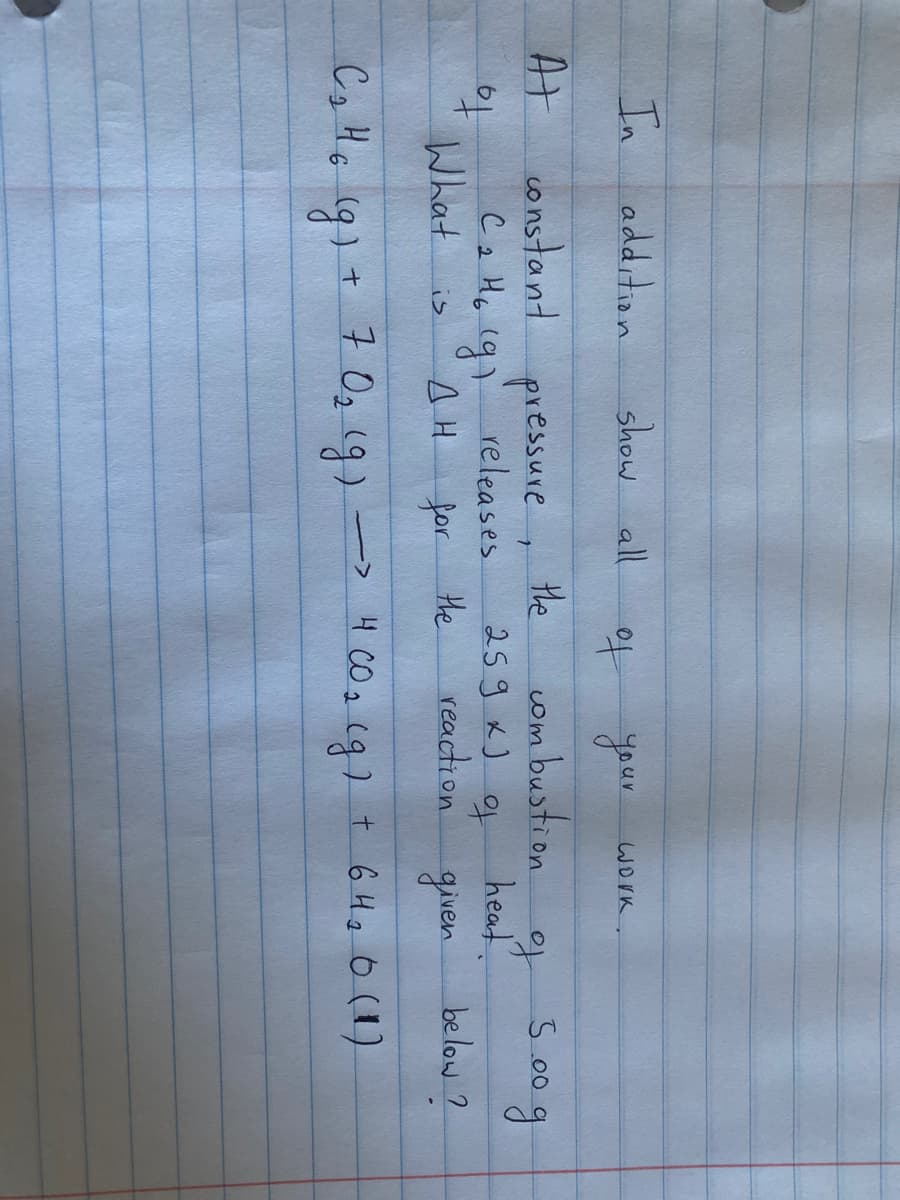 In addition show all of your work.
At constant pressure, the combustion of 5.00 g
of C2H6 (g) releases 259 kJ of heat.
What is ΔH for the reaction given below?
C2H6 (g) + 7 O2 (g) —> 4 CO2 (g) + 6 H2O (l)